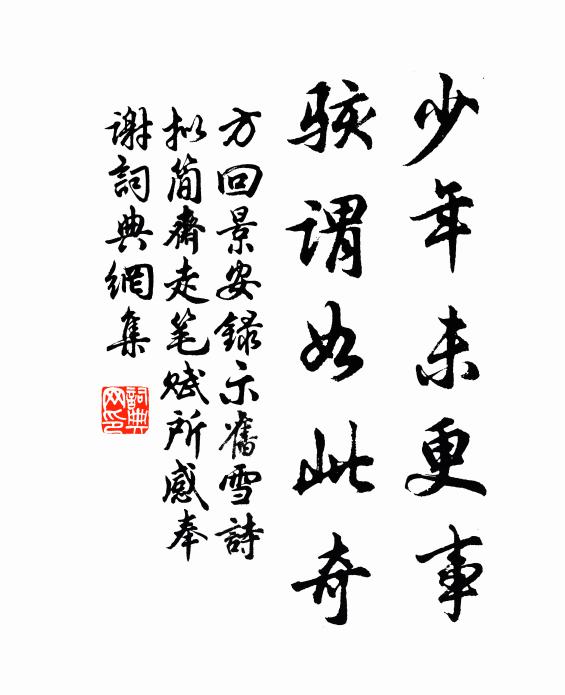 少年未更事
駭謂如此奇
方回景安錄示舊雪詩
擬簡齋走笔賦所感奉
謝詞典網集
詞典网印